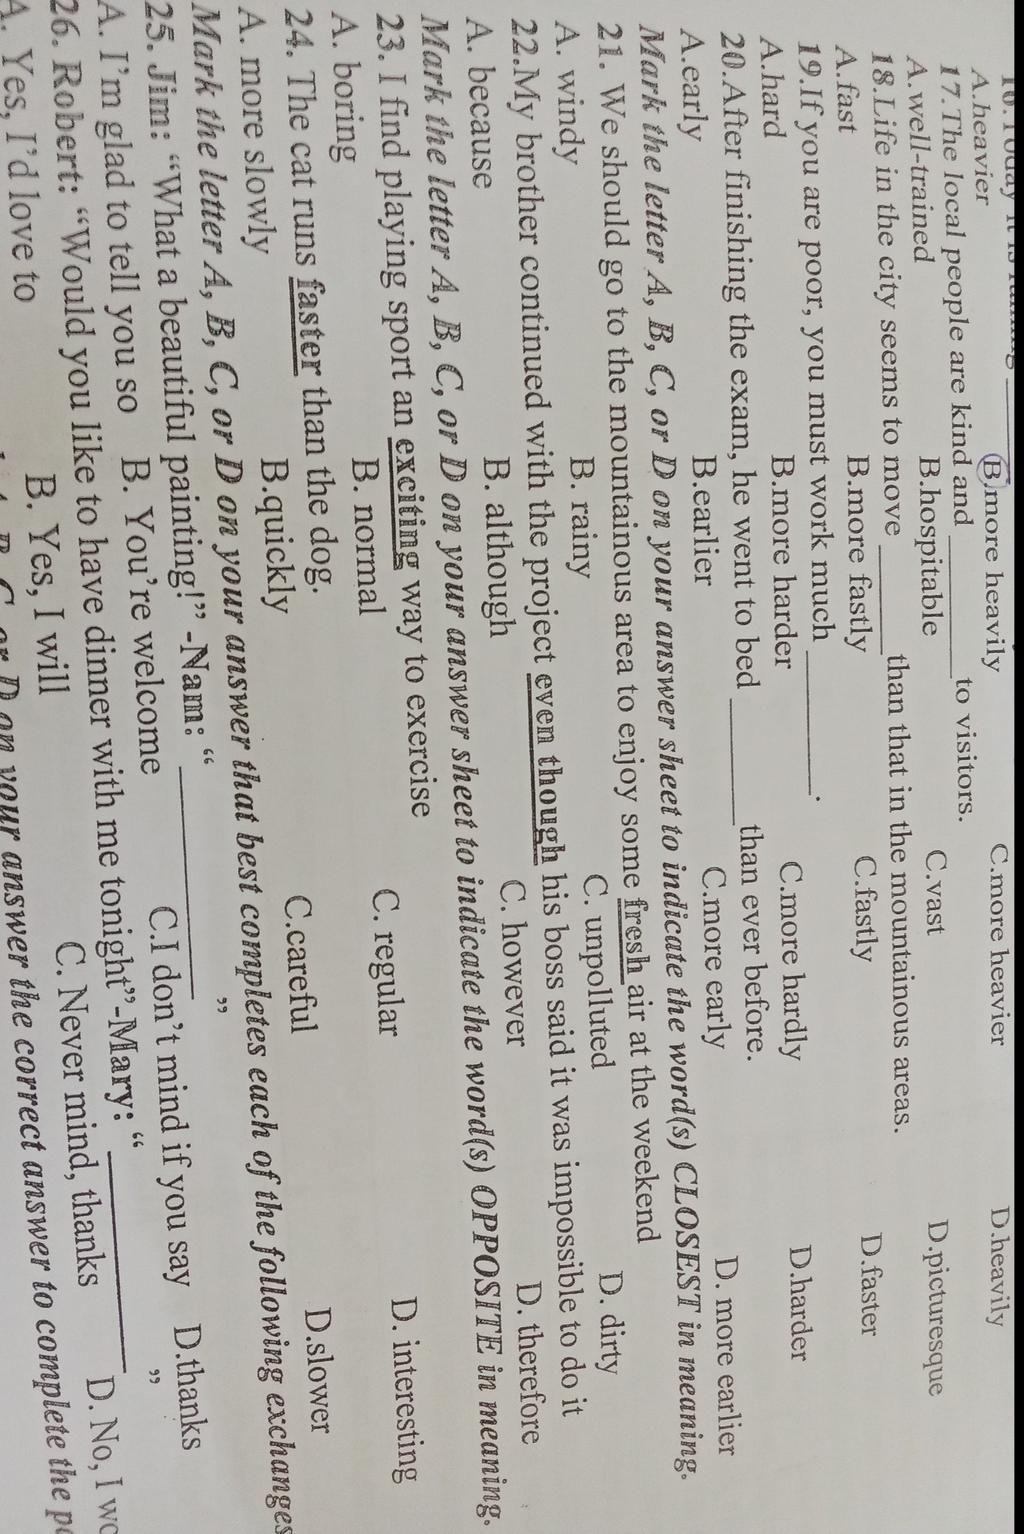 16. Today it is raining ______
A.heavier B.more heavily C.more heavier D.heavily
17. The local people are kind and ______ to visitors.
A.well-trained B.hospitable C.vast D.picturesque
18.Life in the city seems to move ______ than that in the mountainous areas.
A.fast B.more fastly C.fastly D.faster
19.If you are poor, you must work much ______.
A.hard B.more harder C.more hardly D.harder
20.After finishing the exam, he went to bed ______ than ever before.
A.early B.earlier C.more early D. more earlier
Mark the letter A, B, C, or D on your answer sheet to indicate the word(s) CLOSEST in meaning.
21. We should go to the mountainous area to enjoy some fresh air at the weekend
A. windy B. rainy C. unpolluted D. dirty
22.My brother continued with the project even though his boss said it was impossible to do it
A. because B. although C. however D. therefore
Mark the letter A, B, C, or D on your answer sheet to indicate the word(s) OPPOSITE in meaning.
23. I find playing sport an exciting way to exercise
A. boring B. normal C. regular D. interesting
24. The cat runs faster than the dog.
A. more slowly B.quickly C.careful D.slower
Mark the letter A, B, C, or D on your answer that best completes each of the following exchanges
25. Jim: “What a beautiful painting!” -Nam: “ ______ ”
A. I'm glad to tell you so B. You're welcome C.I don't mind if you say D.thanks
26. Robert: “Would you like to have dinner with me tonight”-Mary: “ ______ ”
A. Yes, I'd love to B. Yes, I will C. Never mind, thanks D. No, I
or D on your answer the correct answer to complete the